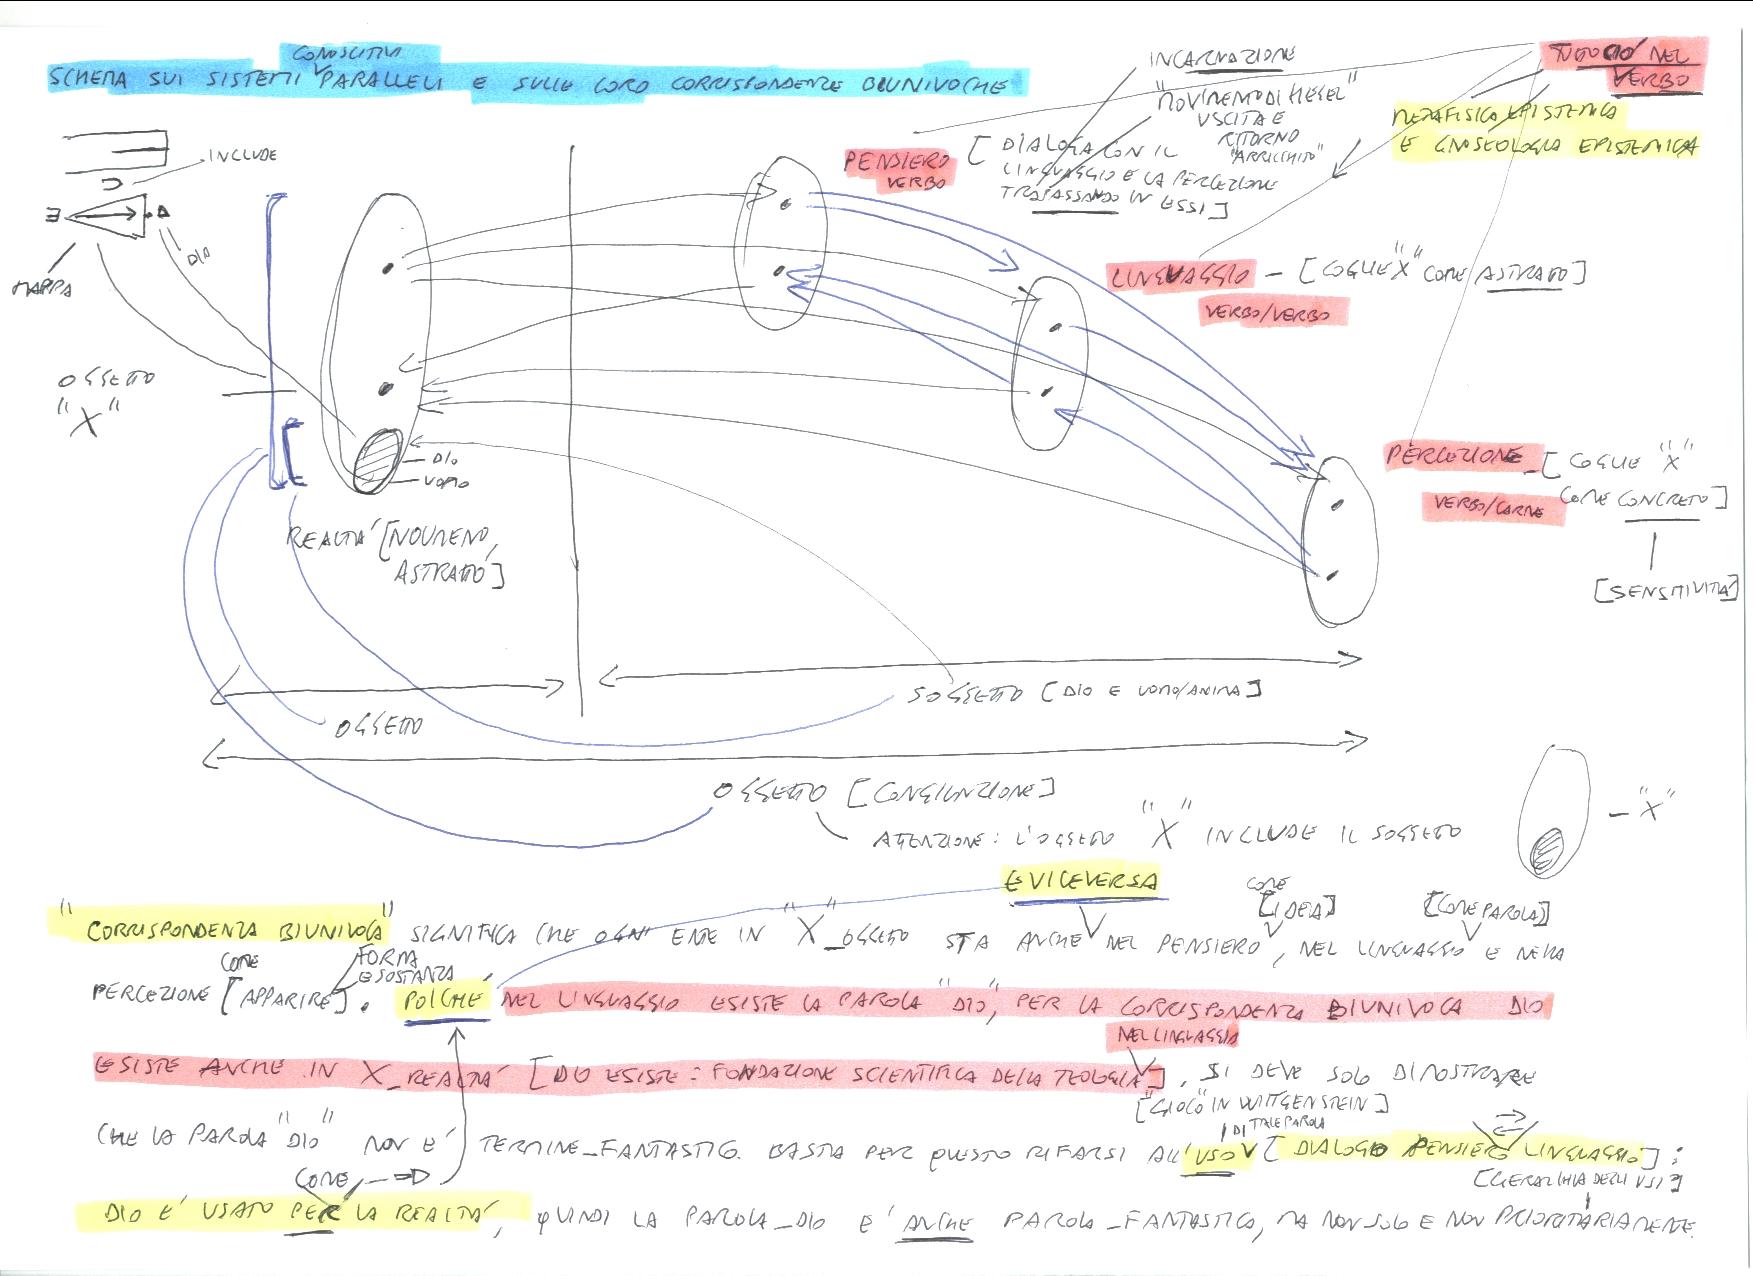 SCHEMA SUI SISTEMI CONOSCITIVI PARALLELI E SULLE LORO CORRISPONDENZE BIUNIVOCHE
INCARNAZIONE
TUTTO CIÒ NEL
VERBO
"MOVIMENTO DI HEGEL"
USCITA E
RITORNO
"ARRICCHITO"
METAFISICA EPISTEMICA
E GNOSEOLOGIA EPISTEMICA
INCLUDE
PENSIERO
VERBO
[DIALOGA CON IL
LINGUAGGIO E LA PERCEZIONE
TRAPASSANDO IN ESSI]
DIO
MAPPA
LINGUAGGIO - [COGLIE "X" COME ASTRATTO]
VERBO/VERBO
OGGETTO
"X"
DIO
UOMO
PERCEZIONE - [COGLIE "X"
COME CONCRETO]
VERBO/CARNE
[SENSITIVITÀ]
REALTÀ [NOUMENO,
ASTRATTO]
SOGGETTO [DIO E UOMO/ANIMA]
OGGETTO
OGGETTO [CONGIUNZIONE]
- "X"
ATTENZIONE: L'OGGETTO "X" INCLUDE IL SOGGETTO
E VICEVERSA
COME
[IDEA]
[COME PAROLA]
"CORRISPONDENZA BIUNIVOCA" SIGNIFICA CHE OGNI ENTE IN "X"_OGGETTO STA ANCHE NEL PENSIERO, NEL LINGUAGGIO E NELLA
COME
FORMA
E SOSTANZA
PERCEZIONE [APPARIRE]. POICHÉ NEL LINGUAGGIO ESISTE LA PAROLA "DIO", PER LA CORRISPONDENZA BIUNIVOCA DIO
NEL LINGUAGGIO
ESISTE ANCHE IN X_REALTÀ [DIO ESISTE: FONDAZIONE SCIENTIFICA DELLA TEOLOGIA], SI DEVE SOLO DIMOSTRARE
["GIOCO" IN WITTGENSTEIN]
DI TALE PAROLA
CHE LA PAROLA "DIO" NON È TERMINE_FANTASTICO. BASTA PER QUESTO RIFARSI ALL'USO [DIALOGO PENSIERO LINGUAGGIO]:
COME
[GERARCHIA DEGLI USI]
DIO È USATO PER LA REALTÀ, QUINDI LA PAROLA_DIO È ANCHE PAROLA_FANTASTICA, MA NON SOLO E NON PRIORITARIAMENTE.